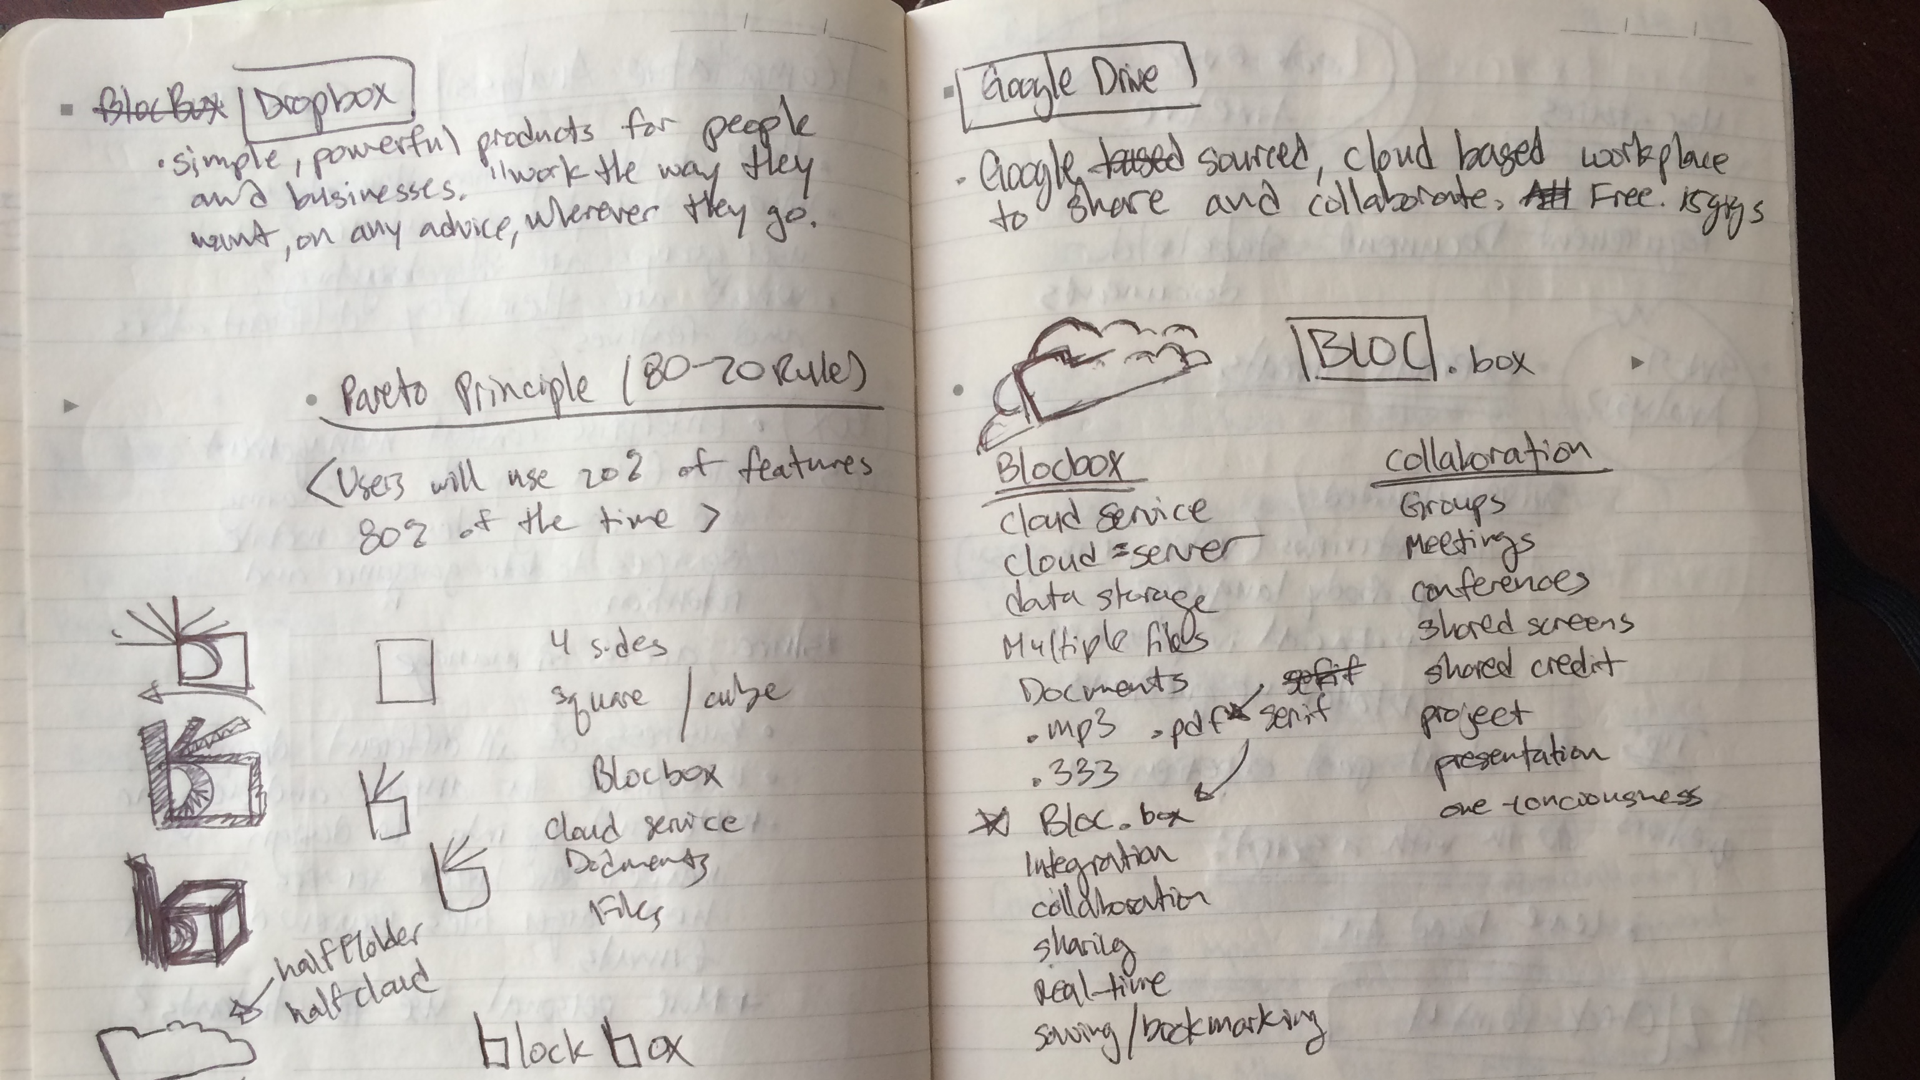 BlocBox Dropbox
• simple, powerful products for people
and businesses. "work the way they
want, on any advice, wherever they go.
• Pareto Principle (80-20 Rule)
<Users will use 20% of features
80% of the time>
4 sides
square / cube
Blocbox
cloud service
Documents
Files
half folder
half cloud
block box
Google Drive
• Google based sourced, cloud based workplace
to share and collaborate. Free. 15gigs
BLOC.box
Blocbox
cloud service
cloud = server
data storage
Multiple files
Documents
.mp3 .pdf serif
serif
.333
Bloc.box
Integration
collaboration
sharing
Real-time
saving/bookmarking
collaboration
Groups
Meetings
conferences
shared screens
shared credit
project
presentation
one-conciousness